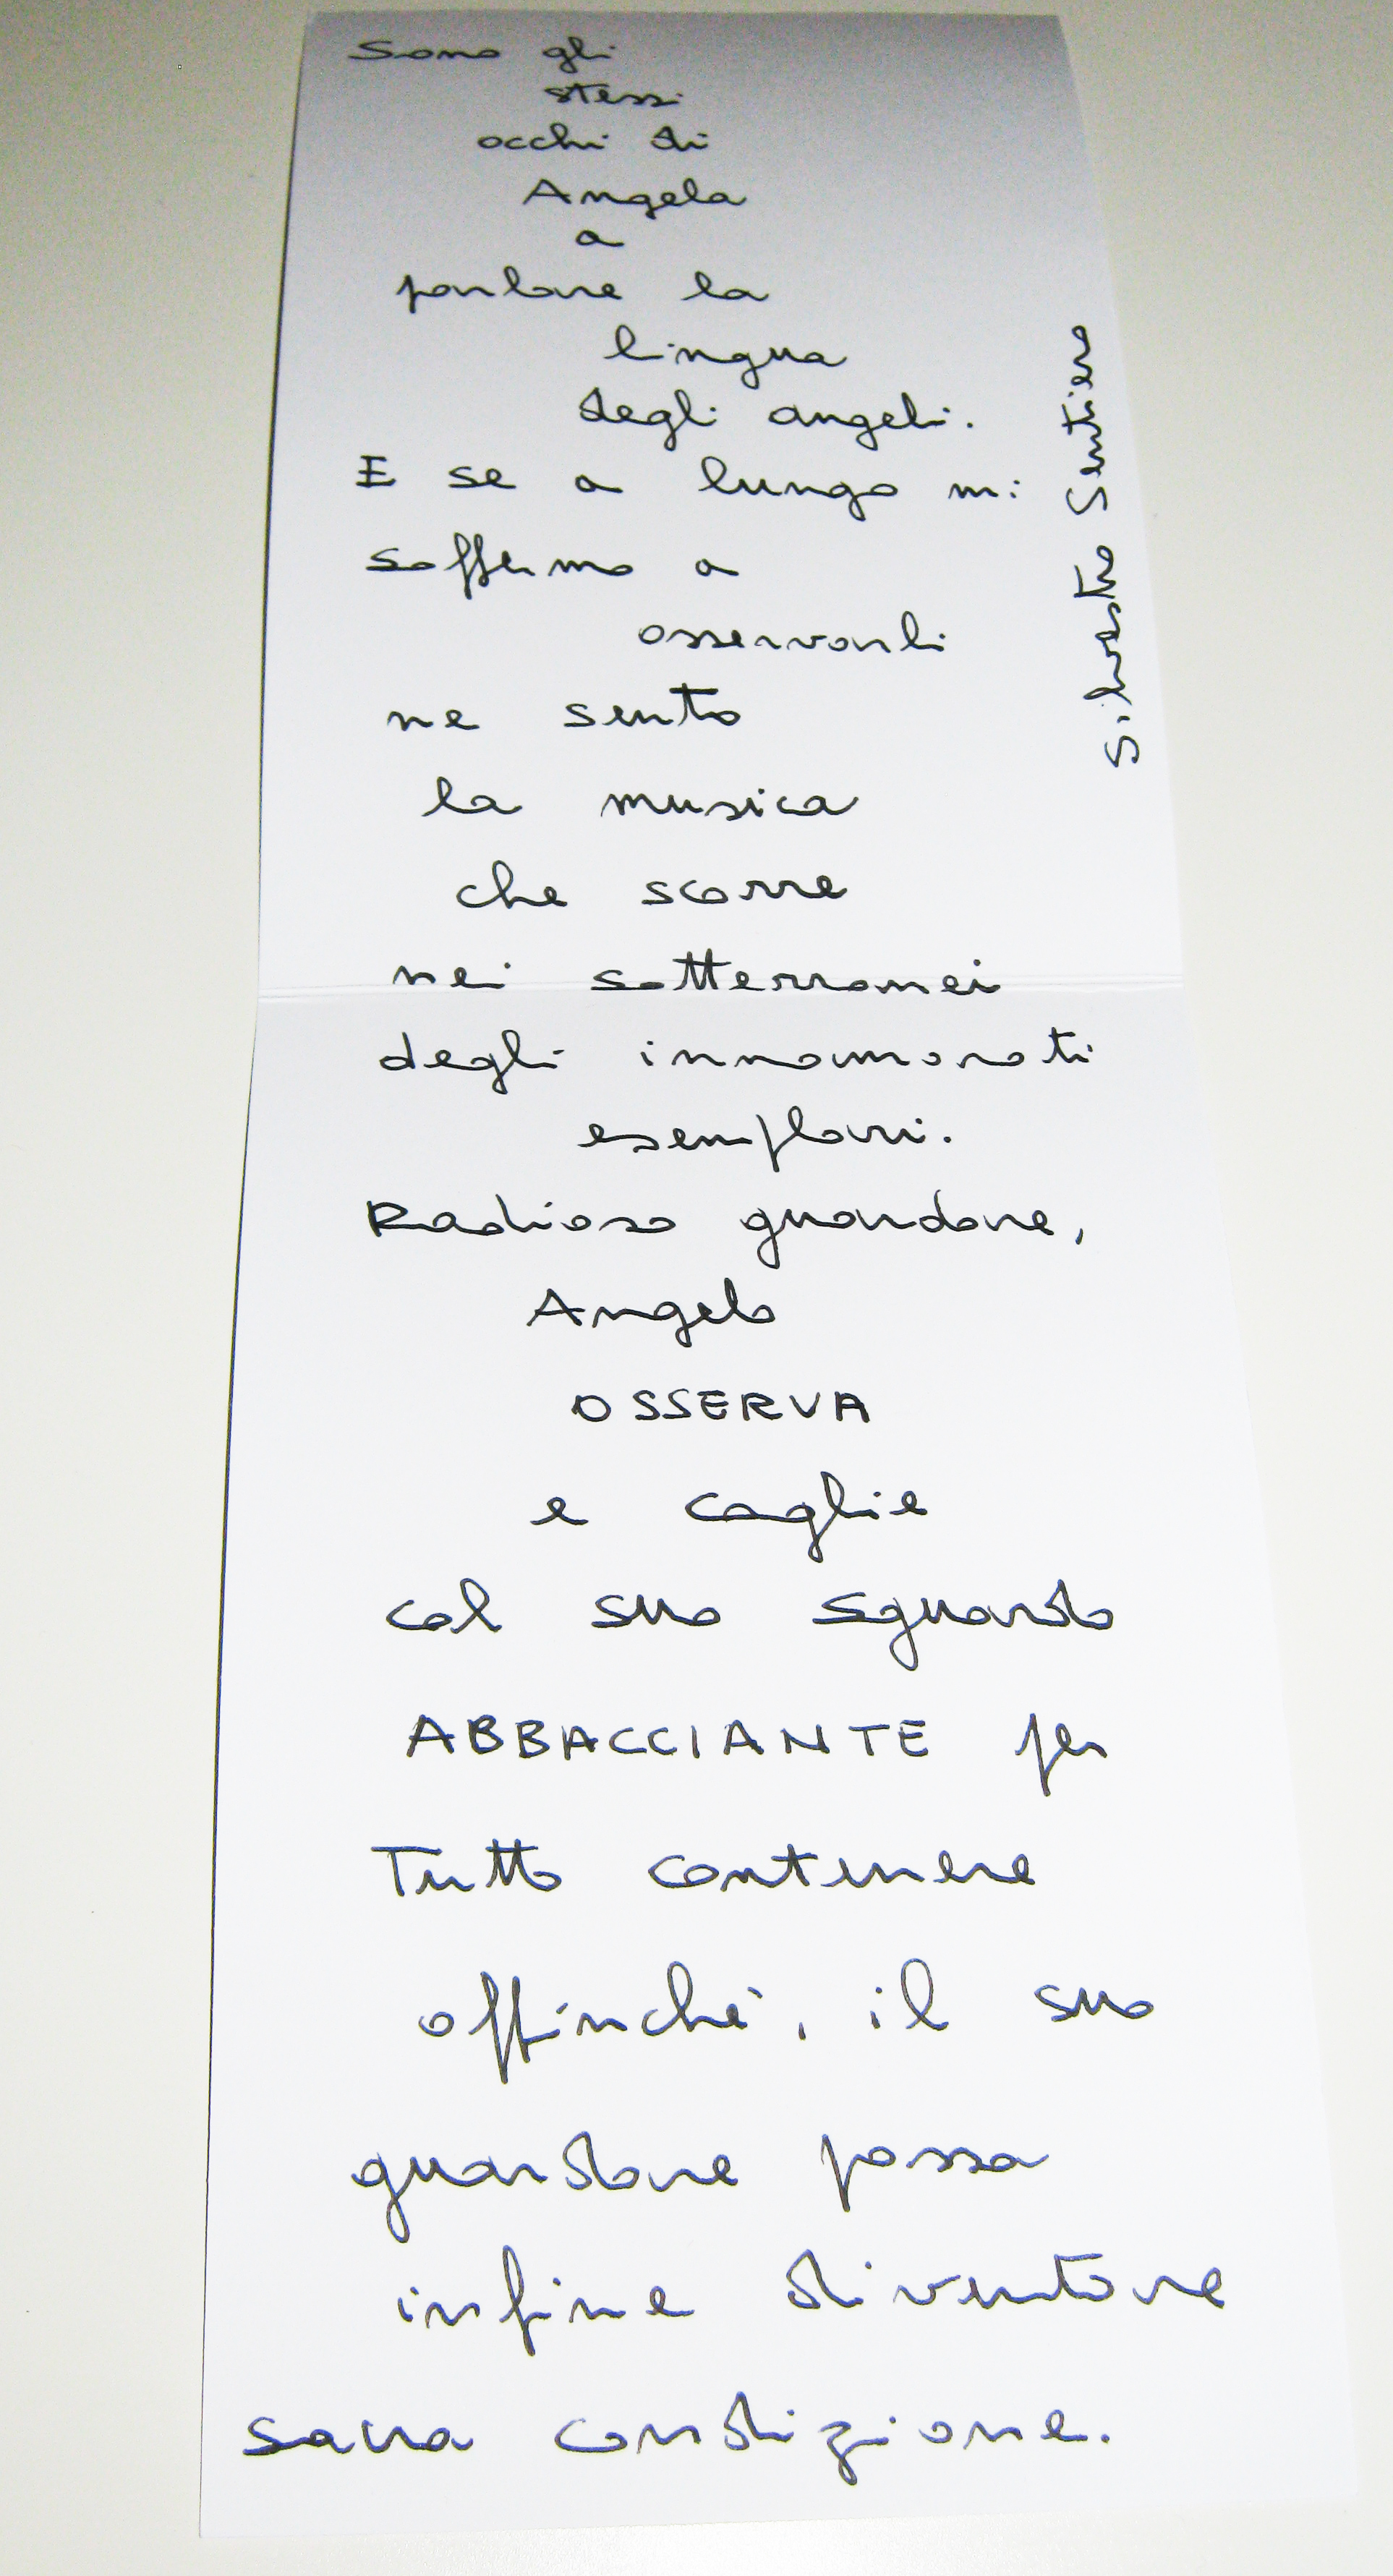 Sono gli
stessi
occhi di
Angela
a
parlare la
lingua
degli angeli.
E se a lungo mi
soffermo a
osservarli
ne sento
la musica
che scorre
nei sotterranei
degli innamorati
esemplari.
Radioso guardare,
Angelo
OSSERVA
e coglie
col suo sguardo
ABBACCIANTE per
Tutto contenere
affinchè, il suo
guardare possa
infine diventare
sacra condizione.
Silvestro Sentiero